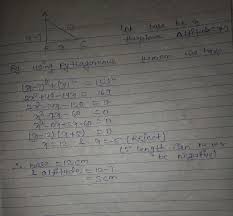 A
x-7
13
B
x
C
Let base be x
therefore Altitude = x-7
By using Pythagoras theorem we have
(x-7)² + (x)² = (13)²
= 169
= 0
x² - 7x - 60 = 0
= 0
(x-12)(x+5) = 0
x = 12 & x = -5 (Reject)
(∵ length can never
be negative)
∴ base = 12cm
& altitude = 12-7
= 5cm